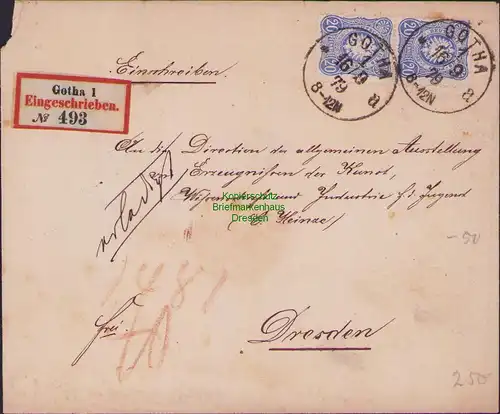 20 20
GOTHA
1
16 9
79
8-12N
a
GOTHA
1
16 9
79
8-12N
a
Einschreiben.
Gotha 1
Eingeschrieben.
№ 493
An die Direction der allgemeinen Ausstellung
von Erzeugnissen der Kunst,
Wissenschaft und Industrie f. d. Jugend
Heinze/
erledigt
Kopierschutz
Briefmarkenhaus
Dresden
- 50
frei.
Dresden
250